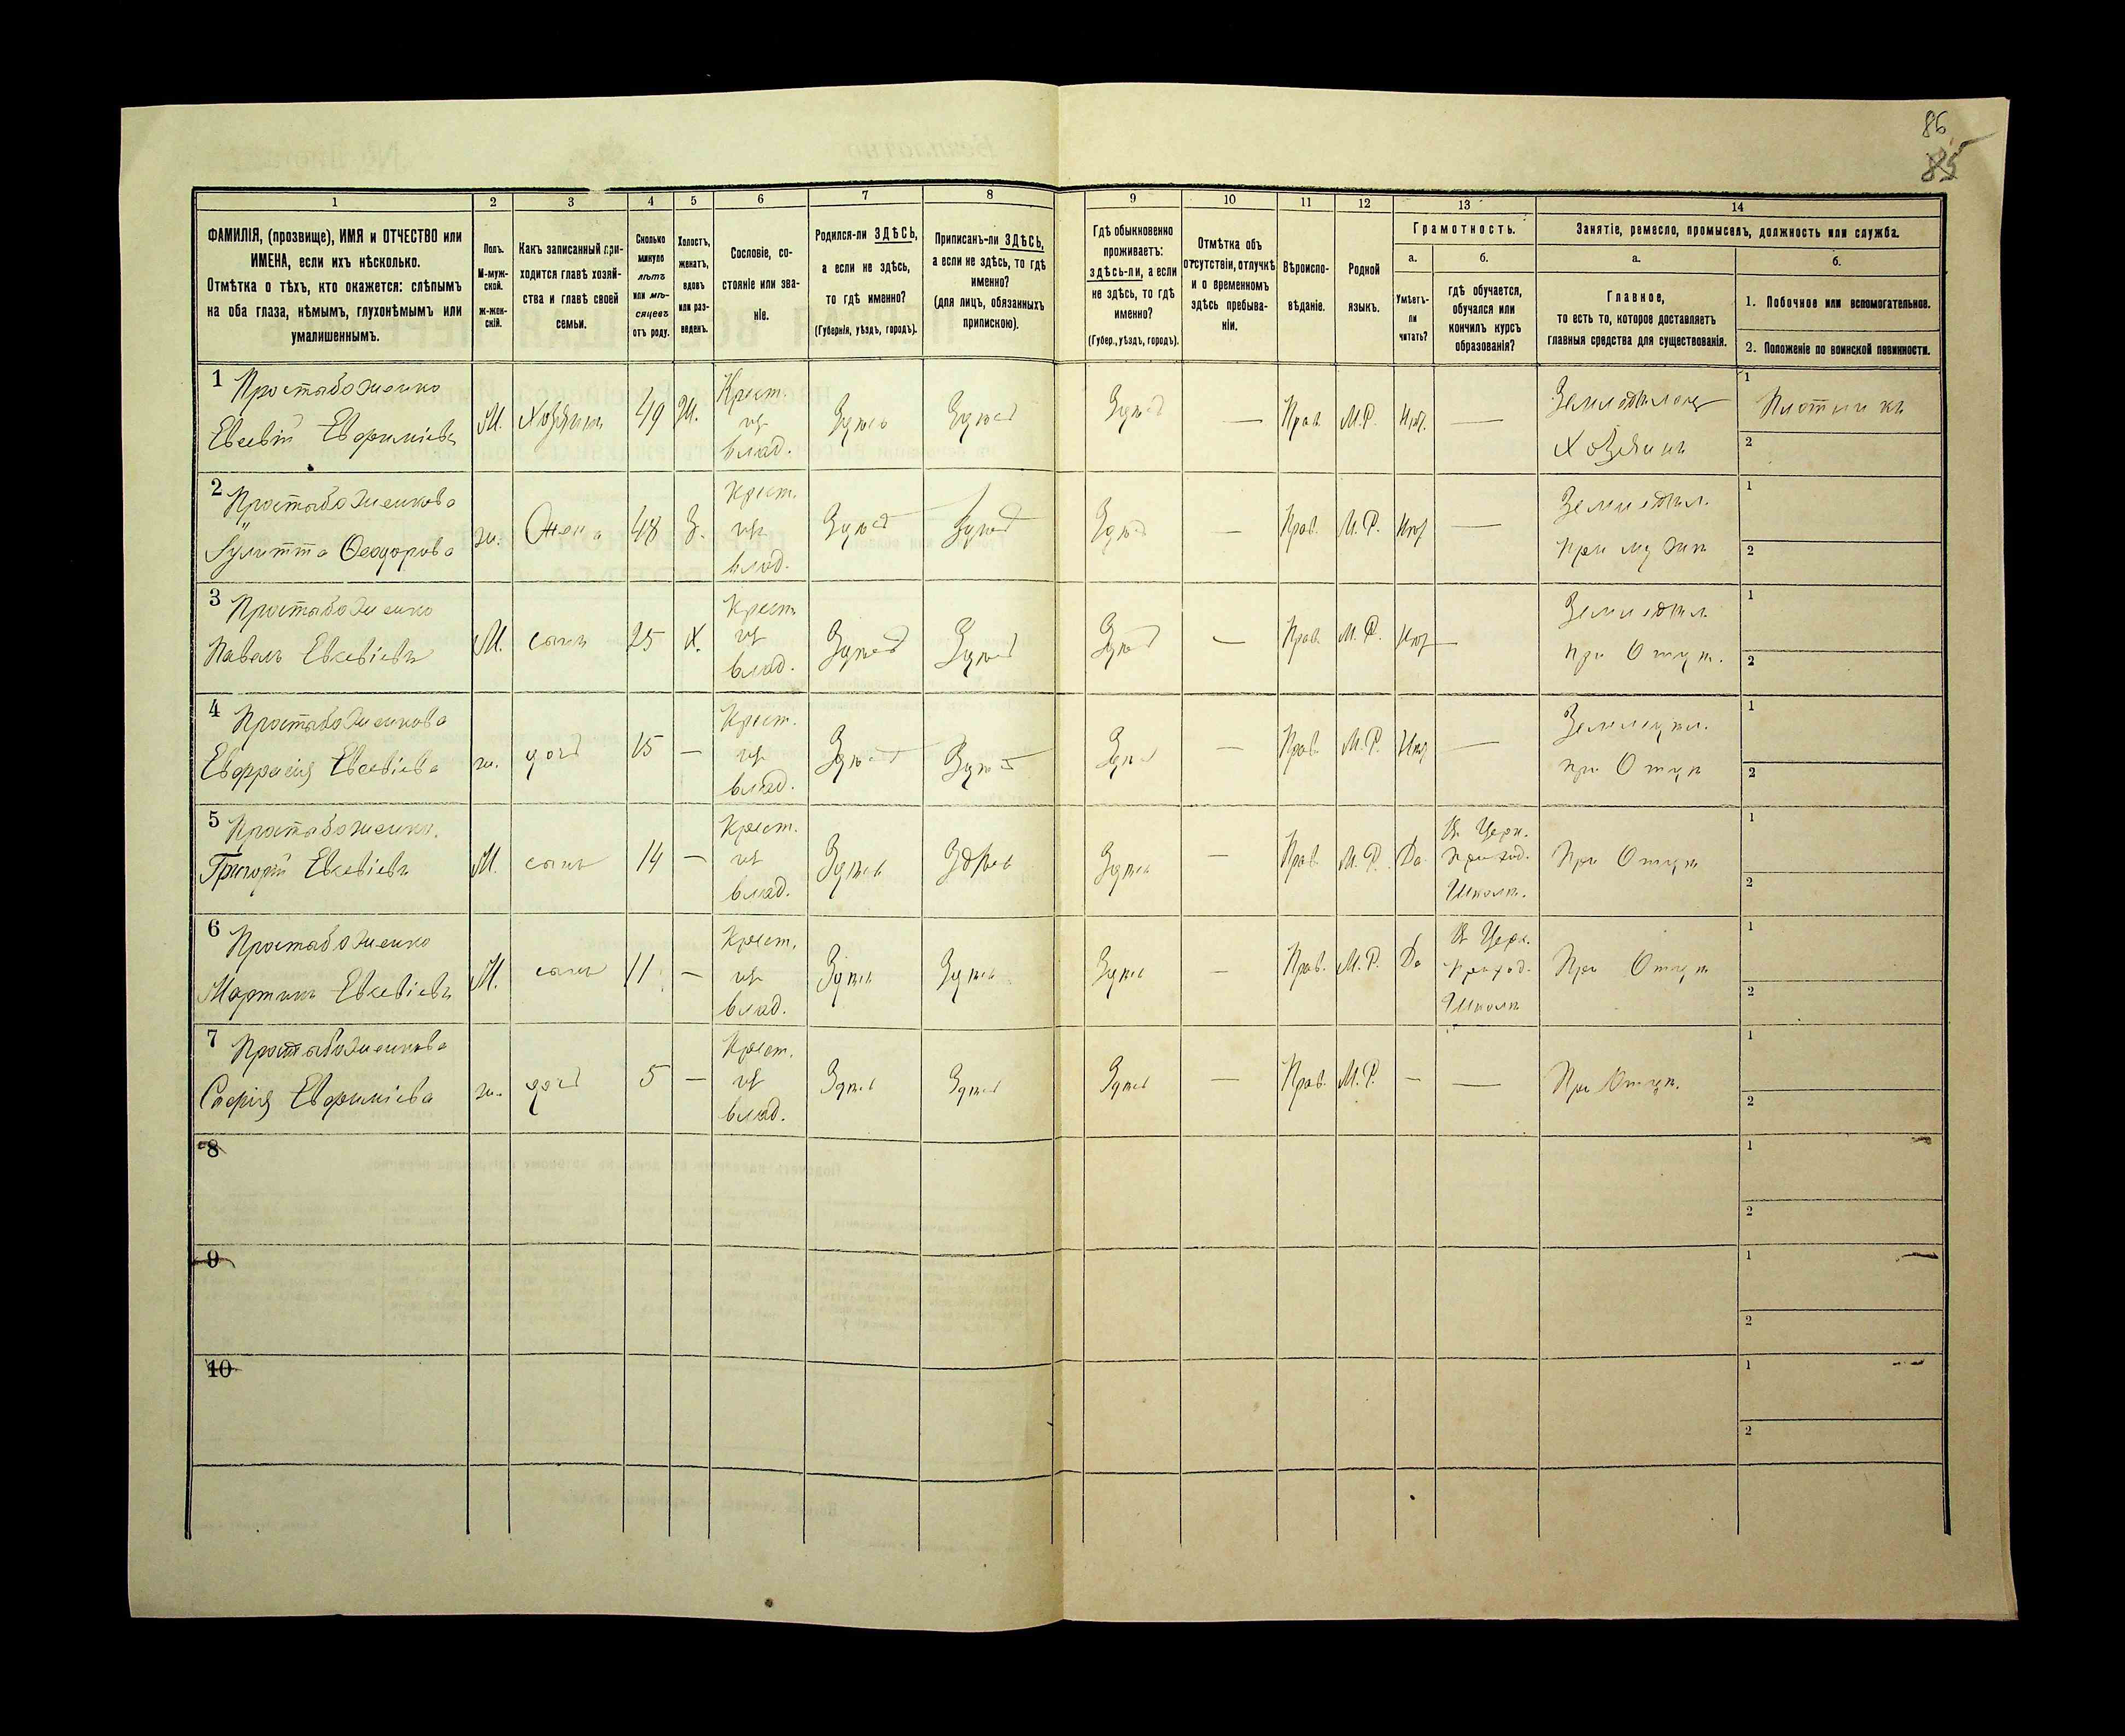 86
85
1 2 3 4 5 6 7 8 9 10 11 12 13 14
ФАМИЛІЯ, (прозвище), ИМЯ и ОТЧЕСТВО или
ИМЕНА, если ихъ нѣсколько.
Отмѣтка о тѣхъ, кто окажется: слѣпымъ
на оба глаза, нѣмымъ, глухонѣмымъ или
умалишеннымъ.
Полъ.
М-муж-
ской.
ж-жен-
скій.
Какъ записанный при-
ходится главѣ хозяй-
ства и главѣ своей
семьи.
Сколько
минуло
лѣтъ
или мѣ-
сяцевъ
отъ роду.
Холостъ,
женатъ,
вдовъ
или раз-
веденъ.
Сословіе, со-
стояніе или зва-
ніе.
Родился-ли ЗДѢСЬ,
а если не здѣсь,
то гдѣ именно?
(Губернія, уѣздъ, городъ).
Приписанъ-ли ЗДѢСЬ,
а если не здѣсь, то гдѣ
именно?
(для лицъ, обязанныхъ
припискою).
Гдѣ обыкновенно
проживаетъ:
здѣсь-ли, а если
не здѣсь, то гдѣ
именно?
(Губер., уѣздъ, городъ).
Отмѣтка объ
отсутствіи, отлучкѣ
и о временномъ
здѣсь пребыва-
ніи.
Вѣроиспо-
вѣданіе.
Родной
языкъ.
Грамотность.
а.
Умѣетъ-
ли
читать?
б.
гдѣ обучается,
обучался или
кончилъ курсъ
образованія?
Занятіе, ремесло, промыселъ, должность или служба.
а.
Главное,
то есть то, которое доставляетъ
главныя средства для существованія.
б.
1. Побочное или вспомогательное.
2. Положеніе по воинской повинности.
1 Простабоженко
Евсевій Евфиміевъ
М. Хозяинъ 49 Ж.
Крест.
изъ
влад.
Здѣсь Здѣсь Здѣсь — Прав. М.Р. Нѣт. —
Земледѣлецъ
Хозяинъ
1 Плотникъ
2
2 Простабоженкова
Іулитта Ѳеодорова
ж. Жена 48 З.
Крест.
изъ
влад.
Здѣсь Здѣсь Здѣсь — Прав. М.Р. Нѣт —
Земледѣл.
при мужѣ
1
2
3 Простабоженко
Павелъ Евсевіевъ
М. сынъ 25 Х.
Крест.
изъ
влад.
Здѣсь Здѣсь Здѣсь — Прав. М.Р. Нѣт —
Земледѣл.
при Отцѣ.
1
2
4 Простабоженкова
Евфрасія Евсевіева
ж. дочь 15 —
Крест.
изъ
влад.
Здѣсь Здѣсь Здѣсь — Прав. М.Р. Нѣт —
Земледѣл.
при Отцѣ
1
2
5 Простабоженко.
Григорій Евсевіевъ
М. сынъ 14 —
Крест.
изъ
влад.
Здѣсь Здѣсь Здѣсь — Прав. М.Р. Да.
Въ Церк.
приход.
Школѣ.
При Отцѣ
1
2
6 Простабоженко
Мартинъ Евсевіевъ
М. сынъ 11 —
Крест.
изъ
влад.
Здѣсь Здѣсь Здѣсь — Прав. М.Р. Да
Въ Церк.
приход.
Школѣ
При Отцѣ
1
2
7 Простабоженкова
Софія Евфиміева
ж. дочь 5 —
Крест.
изъ
влад.
Здѣсь Здѣсь Здѣсь — Прав. М.Р. — —
При Отцѣ.
1
2
8
1
2
9
1
2
10
1
2